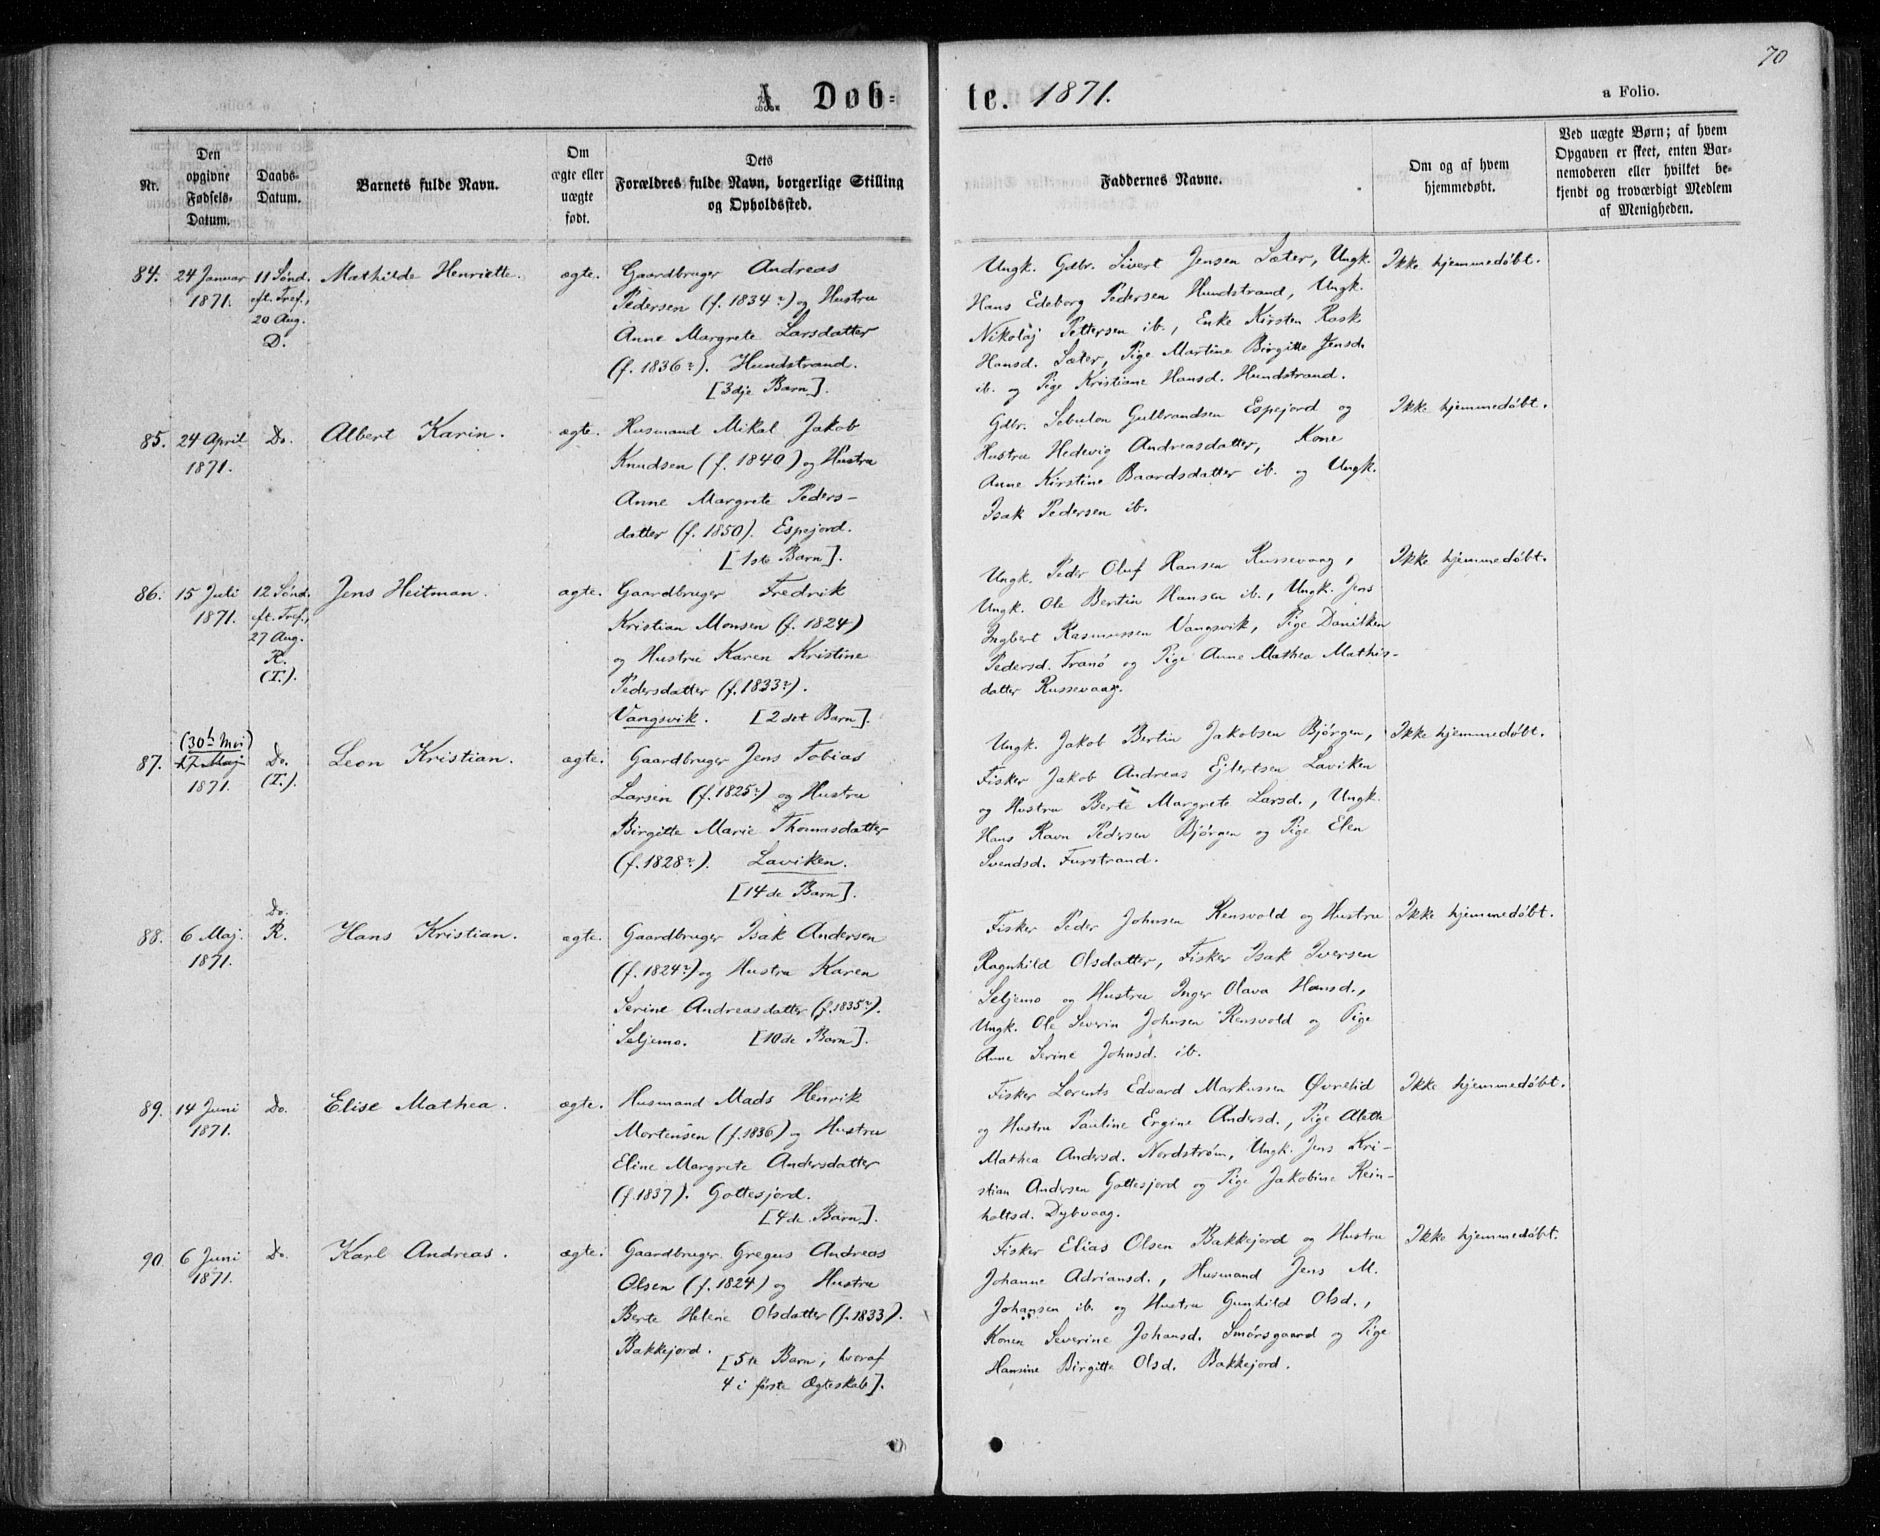 70
A. Døb=te. 1871.
a Folio.
Nr.
Den opgivne Fødsels-Datum.
Daabs-Datum.
Barnets fulde Navn.
Om ægte eller uægte født.
Dets Forældres fulde Navn, borgerlige Stilling og Opholdssted.
Faddernes Navne.
Om og af hvem hjemmedøbt.
Ved uægte Børn; af hvem Opgaven er skeet, enten Barnemoderen eller hvilket bekjendt og troværdigt Medlem af Menigheden.
84. 24 Januar 1871. 11 Sønd. eft. Tref., 20 Aug. D. Mathilde Henriette. ægte.
Gaardbruger Andreas
Pedersen (f. 1834?) og Hustru
Anne Margrete Larsdatter
(f. 1836?). Hundstrand.
[3dje Barn].
Ungk. Gdbr. Sivert Jensen Sæter, Ungk.
Hans Edeborg Pedersen Hundstrand, Ungk.
Nikolaj Pettersen ib., Enke Kirsten Rask
Hansd. Sæter, Pige Martine Birgitte Jensd.
ib. og Pige Kristiane Hansd. Hundstrand.
Ikke hjemmedøbt.
85. 24 April 1871. Do. Albert Karin. ægte.
Husmand Mikal Jakob
Knudsen (f. 1840) og Hustru
Anne Margrete Peders-
datter (f. 1850). Espejord.
[1ste Barn].
Gdbr. Sebulon Gulbrandsen Espejord og
Hustru Hedevig Andreasdatter, Kone
Anne Kirstine Baardsdatter ib. og Ungk.
Isak Pedersen ib.
Ikke hjemmedøbt.
86. 15 Juli 1871. 12 Sønd. eft. Tref., 27 Aug. R. (T.). Jens Heitman. ægte.
Gaardbruger Fredrik
Kristian Monsen (f. 1824)
og Hustru Karen Kristine
Pedersdatter (f. 1833?).
Vangsvik. [2det Barn].
Ungk. Peder Oluf Hansen Russevaag,
Ungk. Ole Bertin Hansen ib., Ungk. Jens
Ingbert Rasmussen Vangsvik, Pige Danikken
Pedersd. Tranø og Pige Anne Mathea Mathis-
datter Russevaag.
Ikke hjemmedøbt.
87. (30te Mai) 17 Maj 1871. Do. (T.). Leon Kristian. ægte.
Gaardbruger Jens Tobias
Larsen (f. 1825?) og Hustru
Birgitte Marie Thomasdatter
(f. 1828?). Laviken.
[14de Barn].
Ungk. Jakob Bertin Jakobsen Bjørgen,
Fisker Jakob Andreas Ejlertsen Laviken
og Hustru Berte Margrete Larsd., Ungk.
Hans Ravn Pedersen Bjørgen og Pige Elen
Svendsd. Furstrand.
Ikke hjemmedøbt.
88. 6 Maj. 1871. Do. R. Hans Kristian. ægte.
Gaardbruger Isak Andersen
(f. 1824?) og Hustru Karen
Serine Andreasdatter (f. 1835?).
Seljemo. [10de Barn].
Fisker Peder Johnsen Rensvold og Hustru
Ragnhild Olsdatter, Fisker Isak Iversen
Seljemo og Hustru Inger Olava Hansd.,
Ungk. Ole Severin Johnsen Rensvold og Pige
Anne Serine Johnsd. ib.
Ikke hjemmedøbt.
89. 14 Juni 1871. Do. Elise Mathea. ægte.
Husmand Mads Henrik
Mortensen (f. 1836) og Hustru
Eline Margrete Andersdatter
(f. 1837). Gottesjord.
[4de Barn].
Fisker Lorents Edvard Markussen Øvrelid
og Hustru Pauline Ergine Andersd., Pige Alette
Mathea Andersd. Nordstrøm, Ungk. Jens Kri-
stian Andersen Gottesjord og Pige Jakobine Rein-
holtsd. Dybvaag.
Ikke hjemmedøbt.
90. 6 Juni 1871. Do. Karl Andreas. ægte.
Gaardbruger Gregus Andreas
Olsen (f. 1824) og Hustru
Berte Helene Olsdatter (f. 1833).
Bakkejord. [5te Barn, hvoraf
4 i første Ægteskab].
Fisker Elias Olsen Bakkejord og Hustru
Johanne Adriansd., Husmand Jens M.
Johansen ib. og Hustru Gunhild Olsd.,
Konen Severine Johansd. Smørsgaard og Pige
Hansine Birgitte Olsd. Bakkejord.
Ikke hjemmedøbt.